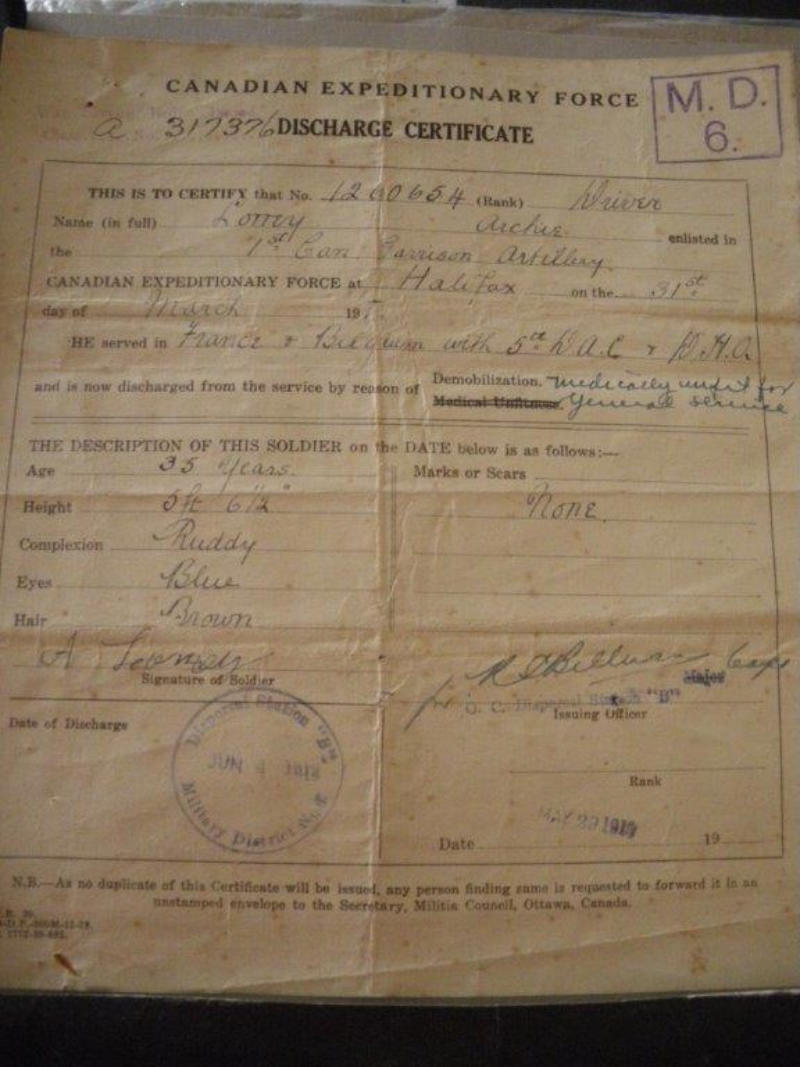 CANADIAN EXPEDITIONARY FORCE
M. D. 6.
a 317376 DISCHARGE CERTIFICATE
THIS IS TO CERTIFY that No. 1260654 (Rank) Driver
Name (in full) Archie enlisted in
the 1st Can Garrison Artillery
CANADIAN EXPEDITIONARY FORCE at Halifax on the 31st
day of March 191
HE served in France & Belgium with 5th D.A.C & D.H.Q
and is now discharged from the service by reason of Demobilization. Medically unfit for
Medical Unfitness. General Service
THE DESCRIPTION OF THIS SOLDIER on the DATE below is as follows:—
Age 35 Years. Marks or Scars
Height 5ft 6½" None.
Complexion Ruddy
Eyes Blue
Hair Brown
A
Signature of Soldier
Capt
Major
for O. C. Dispersal Station "B"
Issuing Officer
Date of Discharge
Dispersal Station "B"
JUN
Military District No.
Rank
Date MAY 29 1919 19
N.B.—As no duplicate of this Certificate will be issued, any person finding same is requested to forward it in an
unstamped envelope to the Secretary, Militia Council, Ottawa, Canada.